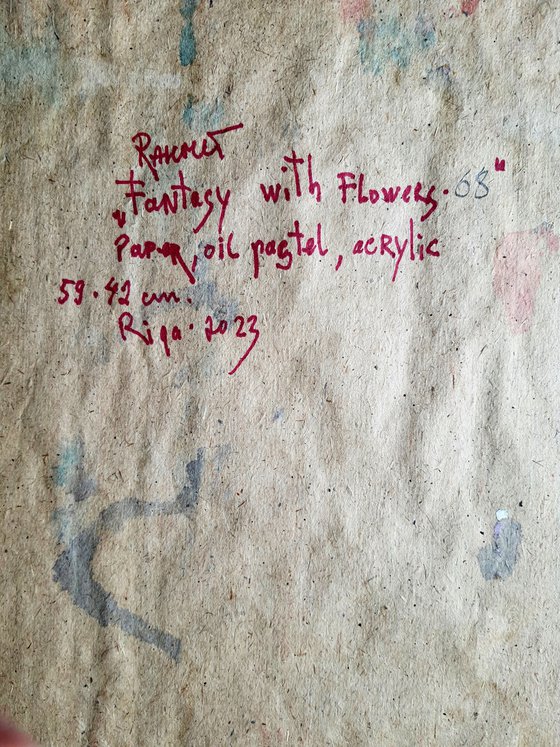 Rakhmet
„Fantasy with Flowers. 68"
Paper, oil pastel, acrylic
59.42 cm.
Riga. 2023